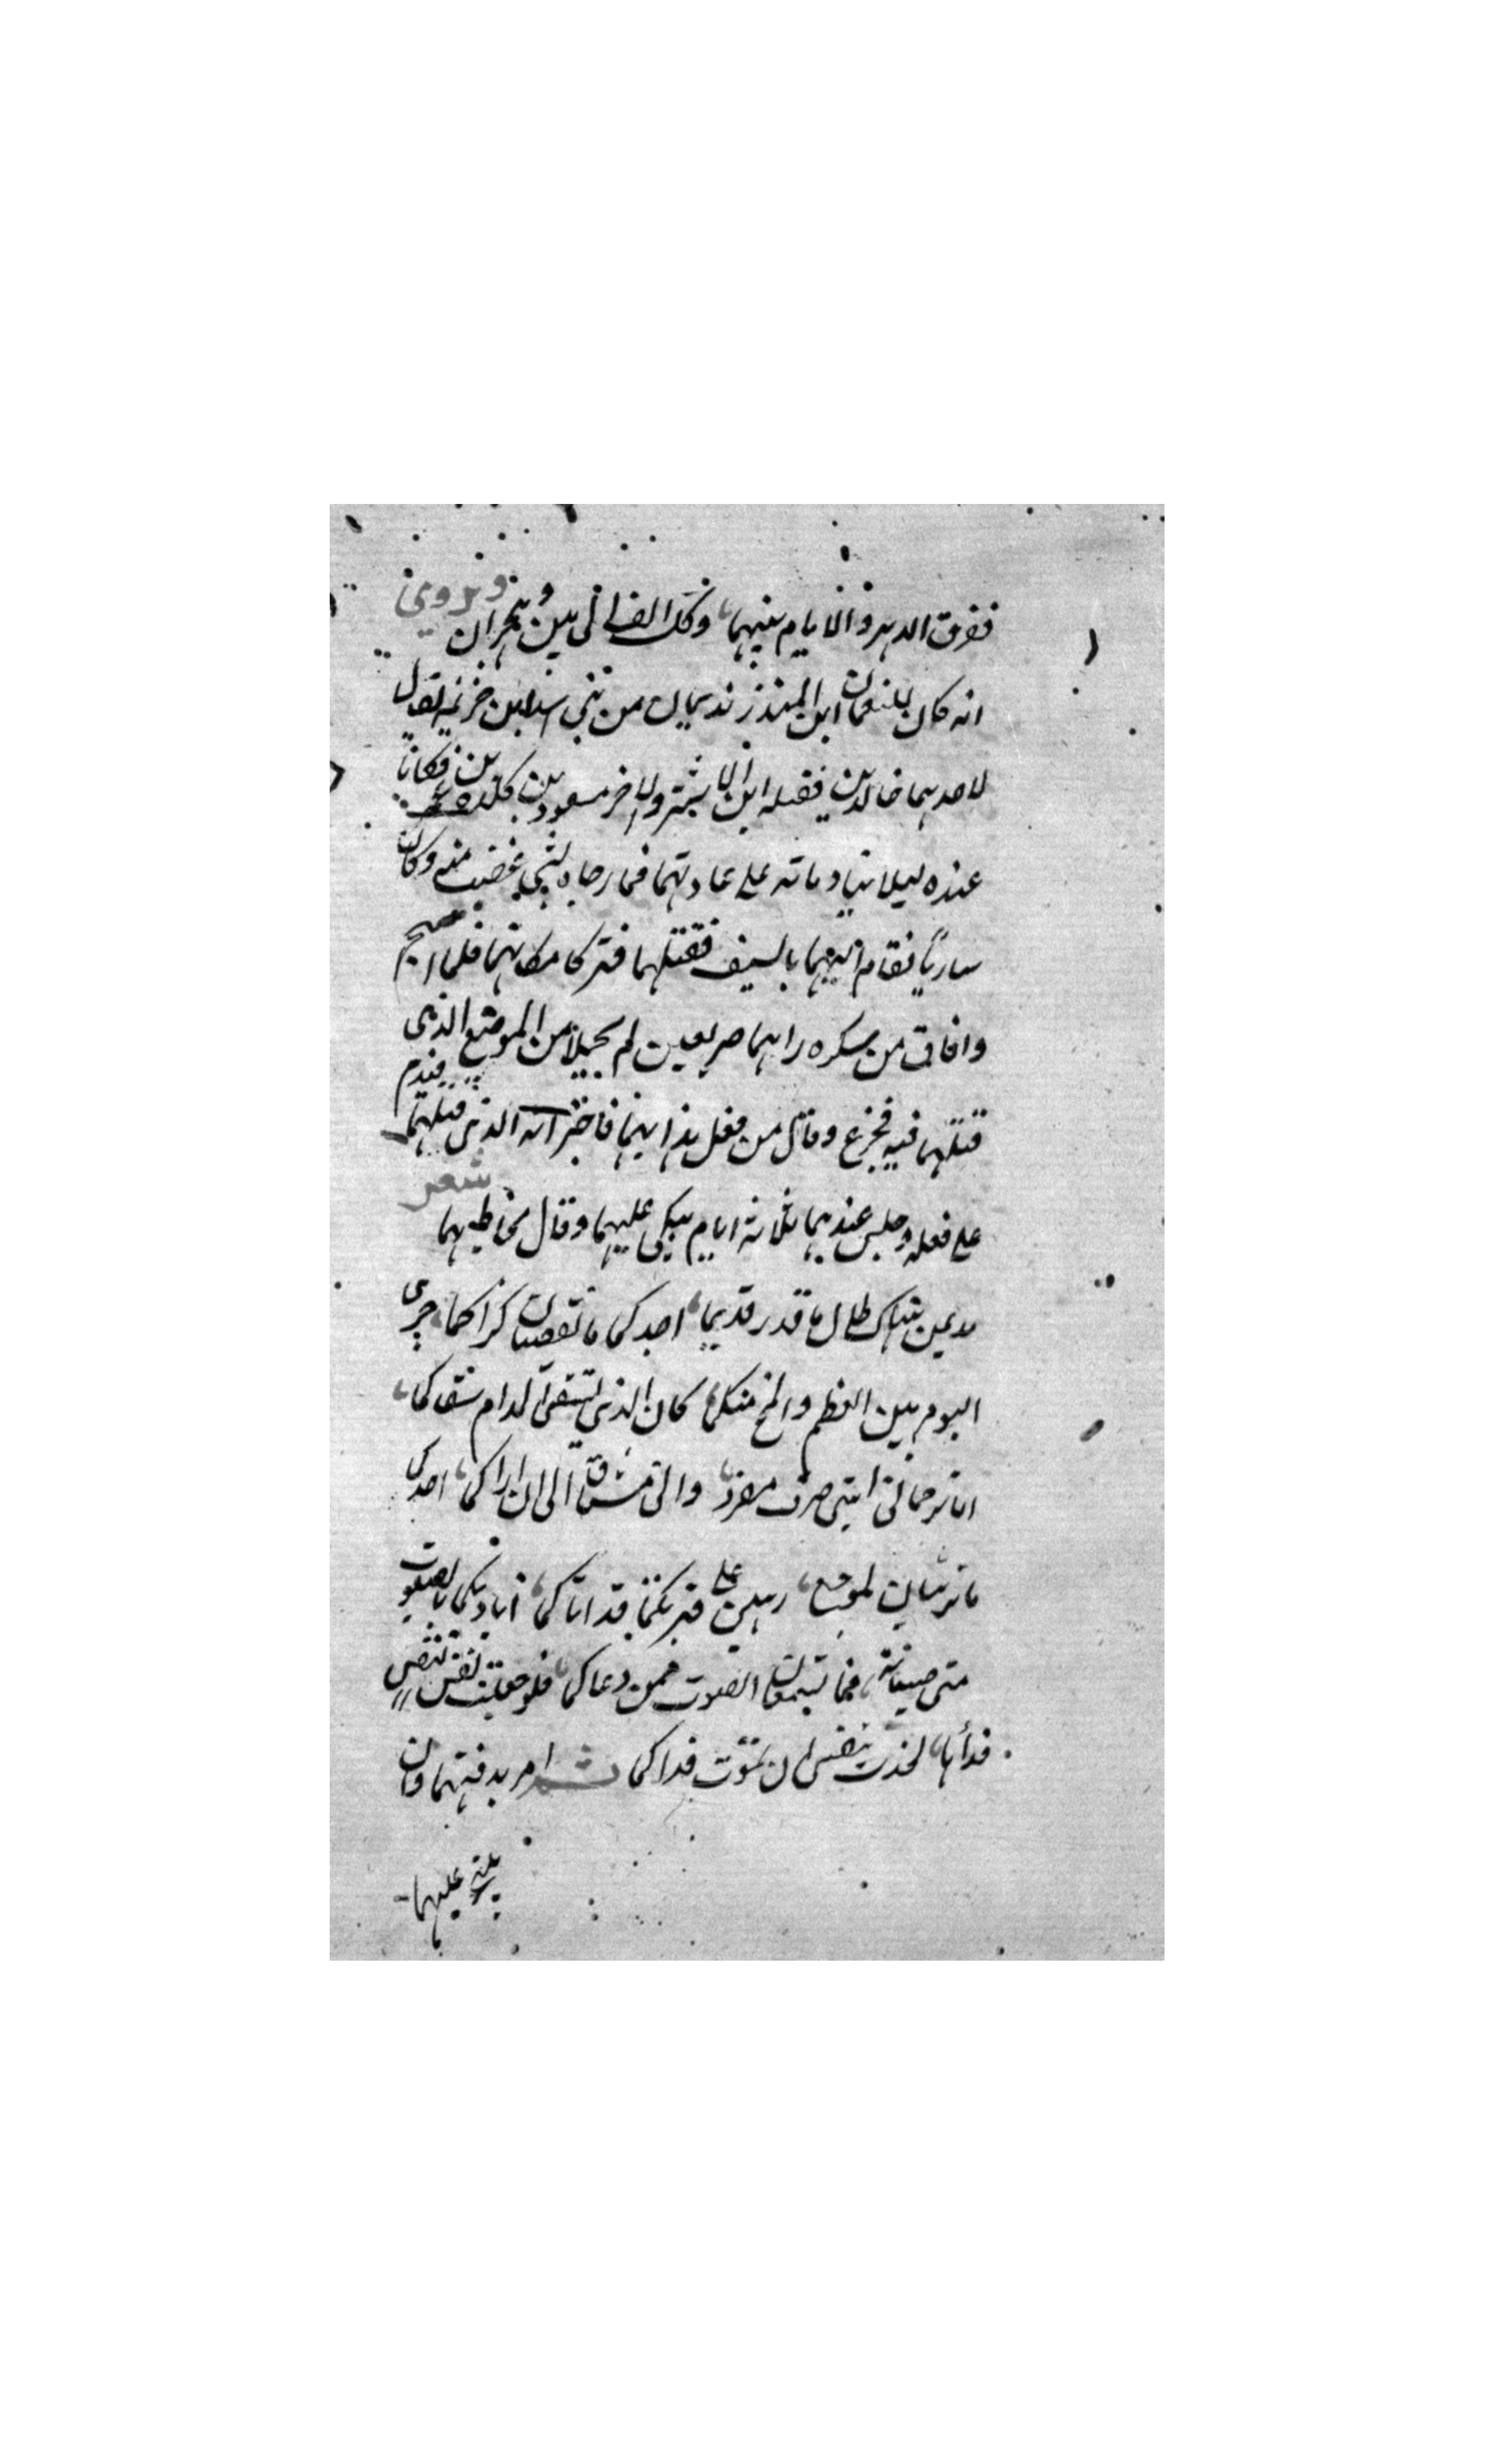 ففرق الدهر والايام بينهما وكل الف الى بين وهجران ويروى
انه كان للنعمان ابن المنذر نديمان من بنى اسد ابن خزيمه يقال
لاحدهما خالد بن فضله ابن الاشتر والاخر مسعود بن كلده فكانا
عنده ليلا ينادمانه على عادتهما فمارحاه لشى غضب منه وكان
سارباً فقام اليهما بالسيف فقتلهما فتركا مكانهما فلما اصبح
وافاق من سكره راهما صريعين لم يحيلا من الموضع الذى
قتلهما فيه فجزع وقال من فعل هذا بهما فاخبر انه الذى قتلهما فندم
على فعله وجلس عندهما ثلاثة ايام يبكى عليهما وقال يخاطبهما شعر
طال ما قدر قديما اجدكما ما تقضيان كراكما جرى
اليوم بين العظم والمخ منكما كان الذى يستقى المدام سقاكما
اما ترحمانى اننى صرت مفردا وانى مشتاق الى ان اراكما اجدكما
ما ترثيان لموجع رهين على قبريكما قد اتاكما اناديكما بالصوت
متى صبيانة فما تسمعان الصوت ممن دعاكما فلو جعلت نفس لنفس
فدائها لجدت بنفسى ان تموت فداكما ثم امر بدفنهما وان
يبنى عليهما